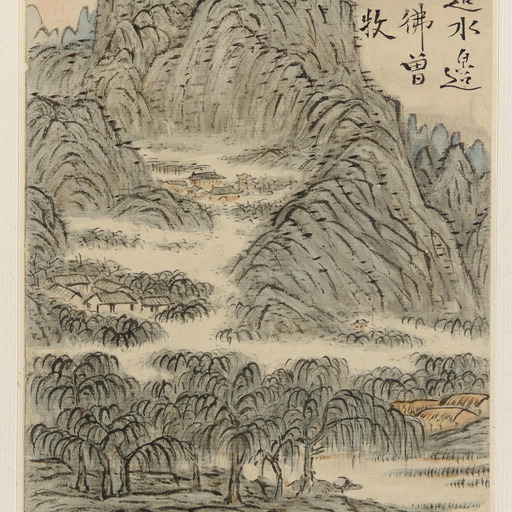 水邊
彿曾
牧